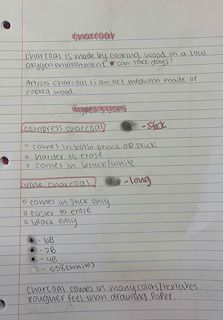 Charcoal
Charcoal is made by cooking wood in a low
oxygen environment *can take days!
Artists charcoal is an art medium made of
Types & Uses
compress charcoal - stick
comes in both pencil or stick
harder to erase
comes in black/white
vine charcoal - long
comes in stick only
easier to erase
black only
- 6B
- 2B
- 4B
Charcoal comes in many colors/textures
rougher feel than drawing paper